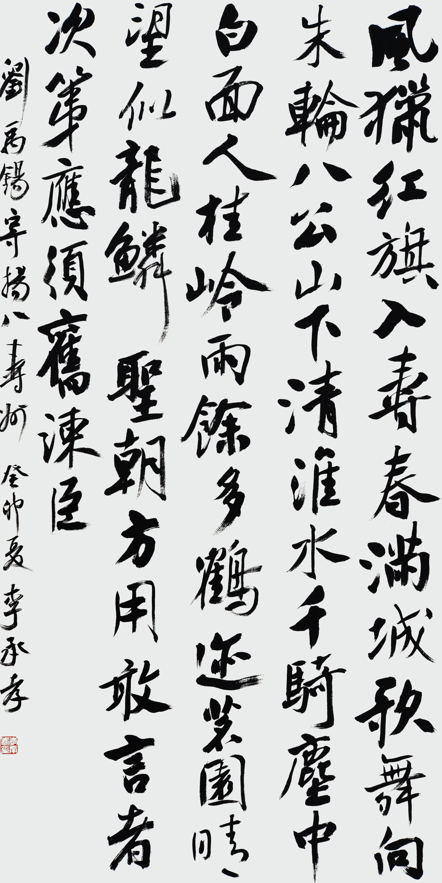 風獵紅旗入壽春滿城歌舞向
朱輪八公山下清淮水千騎塵中
白面人桂嶺雨餘多鶴迹茗園晴
望似龍鱗 聖朝方用敢言者
次第應須舊諫臣
劉禹錫寄揚八壽州 癸卯夏李承孝